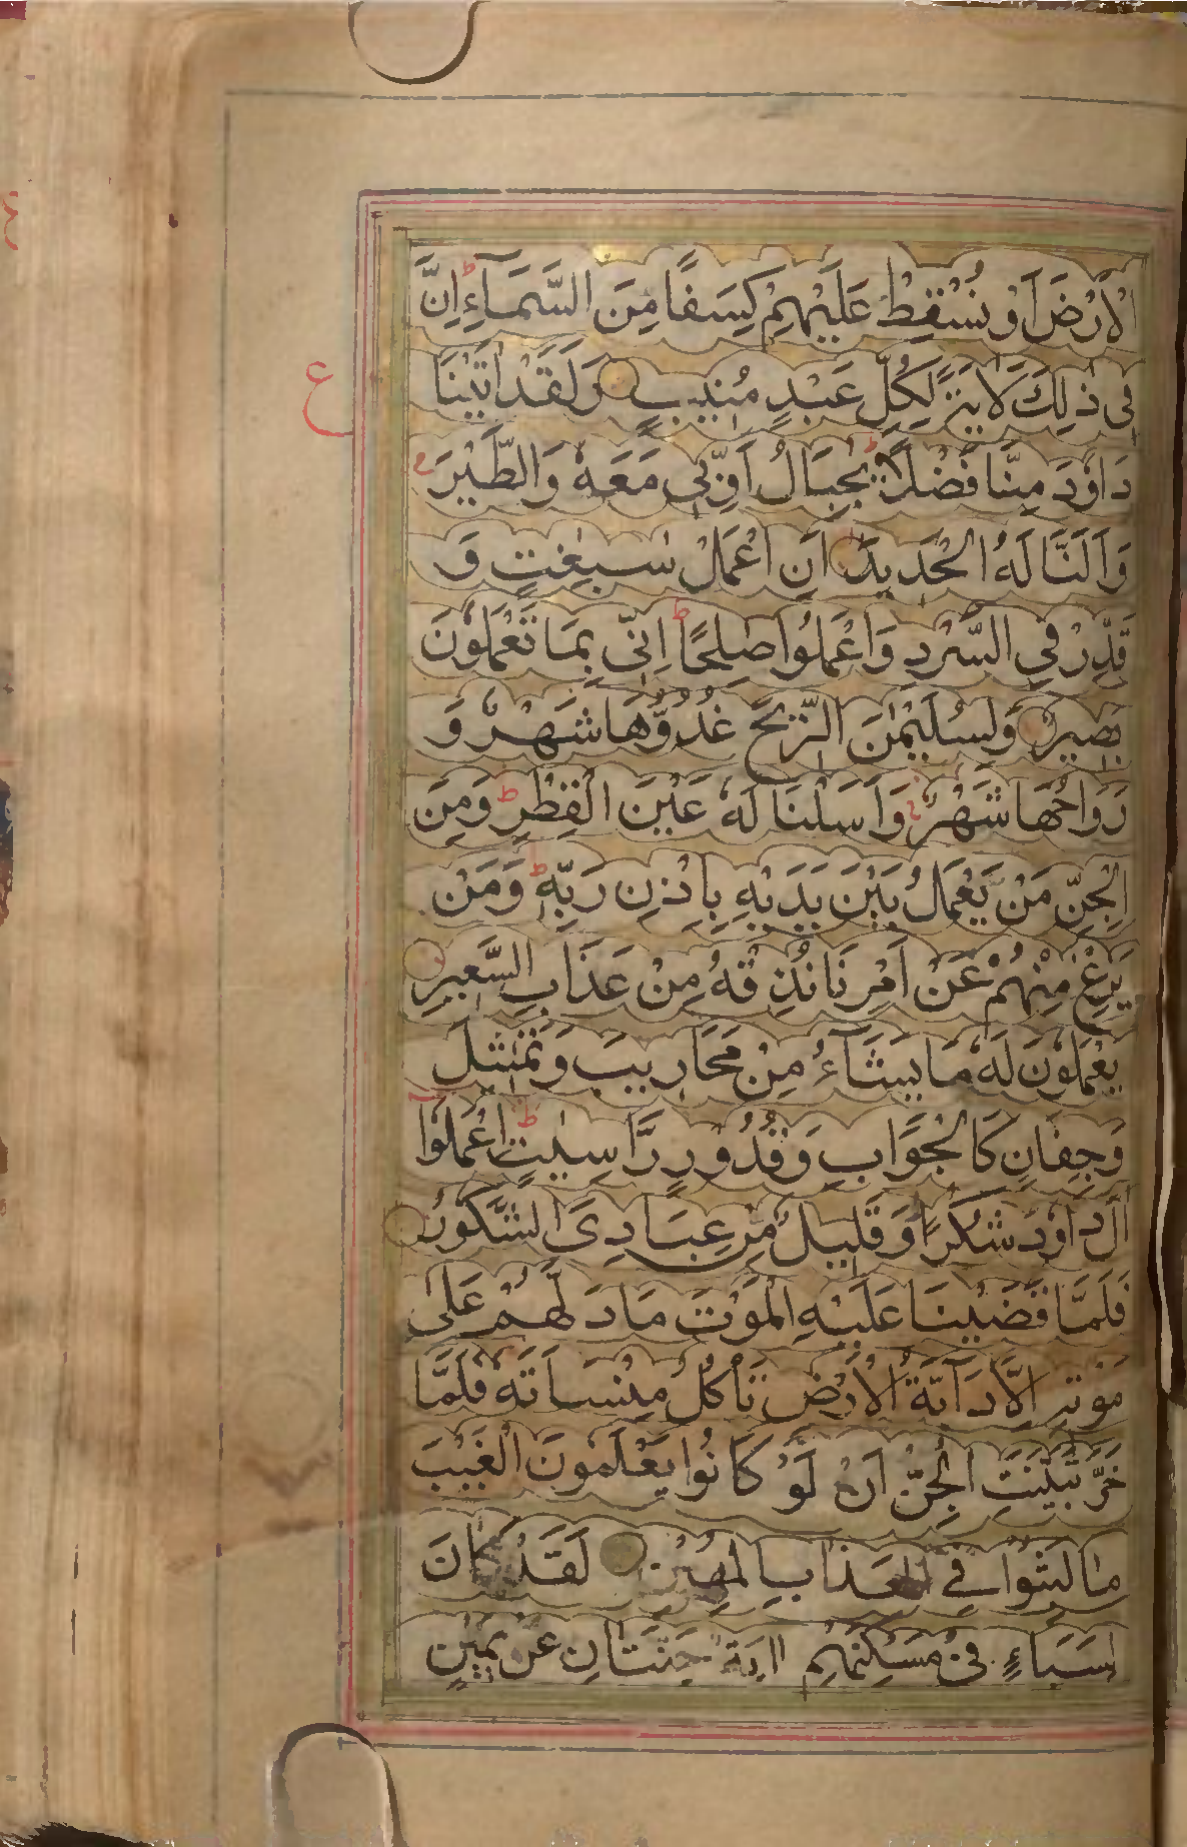 الْاَرْضَ اَوْ نُسْقِطْ عَلَيْهِمْ كِسَفًا مِنَ السَّمَآءِ ط اِنَّ
فِى ذٰلِكَ لَاٰيَةً لِكُلِّ عَبْدٍ مُنِيبٍ وَلَقَدْ اٰتَيْنَا
ع
دَاوٗدَ مِنَّا فَضْلًا ط يٰجِبَالُ اَوِّبِى مَعَهٗ وَالطَّيْرَ
وَاَلَنَّا لَهُ الْحَدِيدَ اَنِ اعْمَلْ سٰبِغٰتٍ وَ
قَدِّرْ فِى السَّرْدِ وَاعْمَلُوا صٰلِحًا ط اِنِّى بِمَا تَعْمَلُونَ
بَصِيرٌ وَلِسُلَيْمٰنَ الرِّيحَ غُدُوُّهَا شَهْرٌ وَ
رَوَاحُهَا شَهْرٌ وَاَسَلْنَا لَهٗ عَيْنَ الْقِطْرِ ط وَمِنَ
الْجِنِّ مَنْ يَعْمَلُ بَيْنَ يَدَيْهِ بِاِذْنِ رَبِّهٖ ط وَمَنْ
يَزِغْ مِنْهُمْ عَنْ اَمْرِنَا نُذِقْهُ مِنْ عَذَابِ السَّعِيرِ
يَعْمَلُونَ لَهٗ مَا يَشَآءُ مِنْ مَحَارِيبَ وَتَمٰثِيلَ
وَجِفَانٍ كَالْجَوَابِ وَقُدُورٍ رَّاسِيٰتٍ ط اِعْمَلُوٓا
اٰلَ دَاوٗدَ شُكْرًا وَقَلِيلٌ مِنْ عِبَادِىَ الشَّكُورُ
فَلَمَّا قَضَيْنَا عَلَيْهِ الْمَوْتَ مَا دَلَّهُمْ عَلٰى
مَوْتِهٖ اِلَّا دَآبَّةُ الْاَرْضِ تَاْكُلُ مِنْسَاَتَهٗ فَلَمَّا
خَرَّ تَبَيَّنَتِ الْجِنُّ اَنْ لَوْ كَانُوا يَعْلَمُونَ الْغَيْبَ
مَا لَبِثُوا فِى الْعَذَابِ الْمُهِينِ لَقَدْ كَانَ
لِسَبَاءٍ فِى مَسْكَنِهِمْ اٰيَةٌ جَنَّتَانِ عَنْ يَمِينٍ